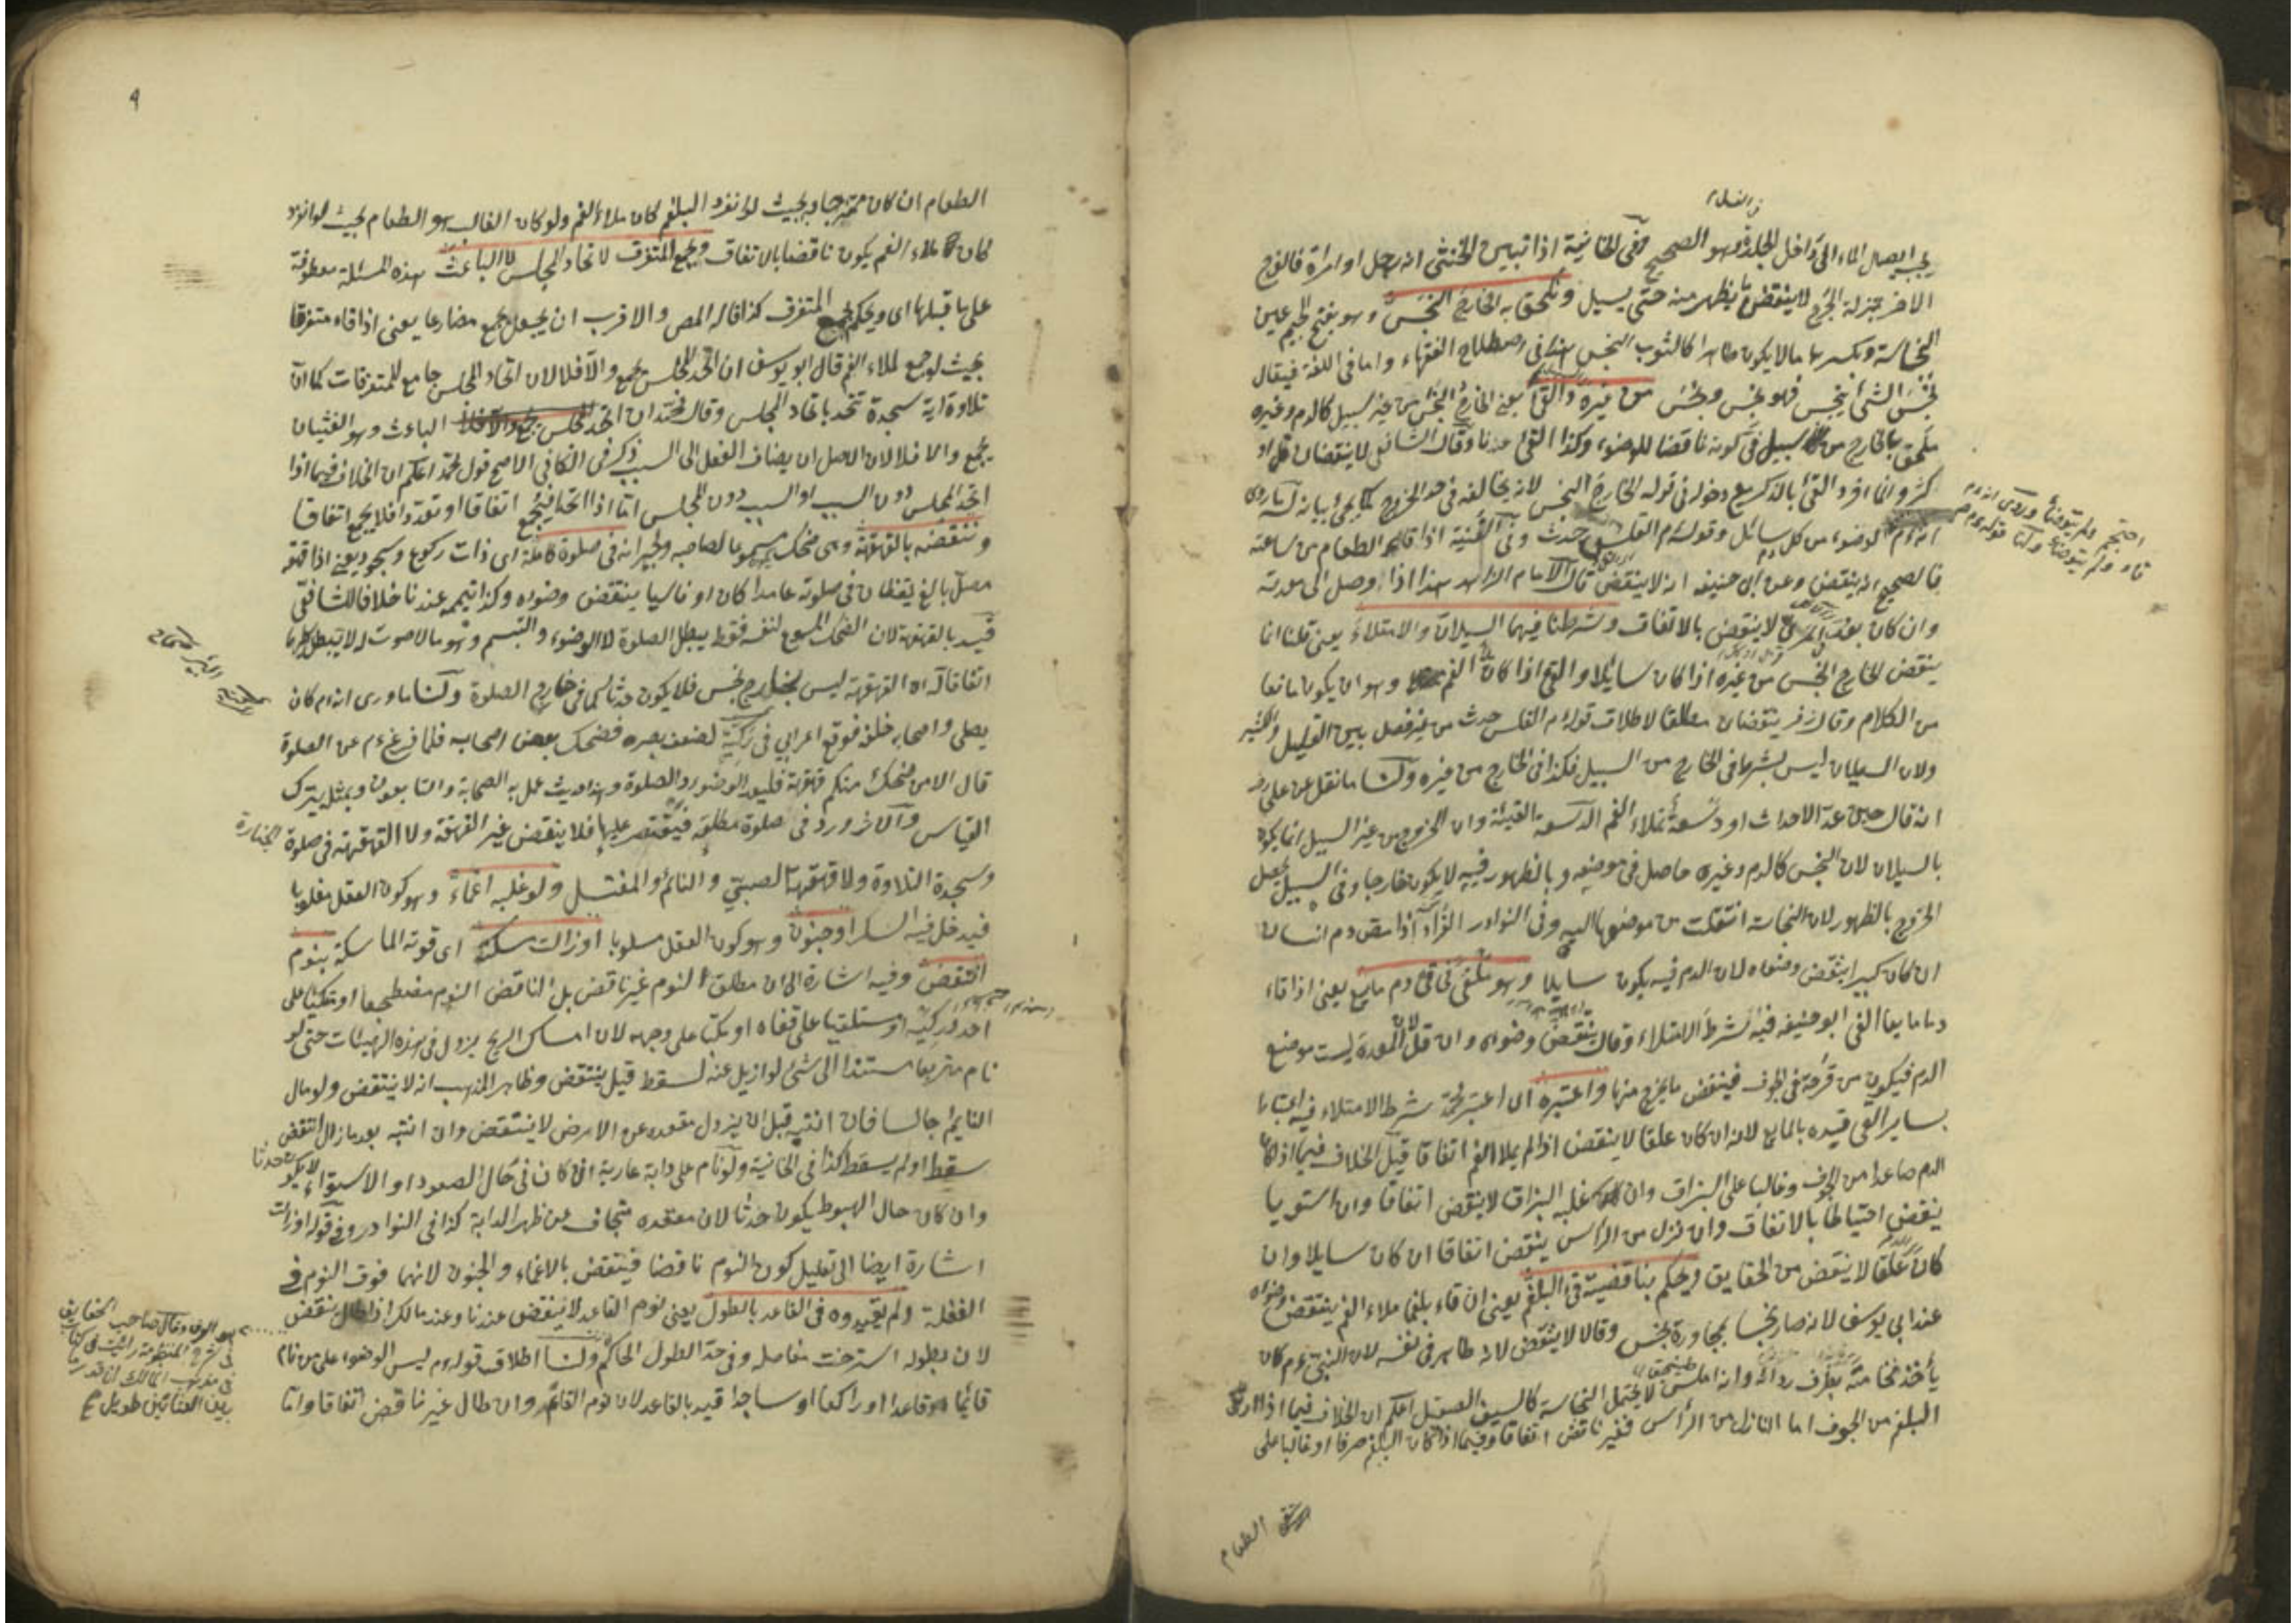 في الغسل
يجب ايصال الماء الى داخل الجلدة وهو الصحيح وفي الخانية اذا تبين الخنثى انه رجل او امراة فالفرج
الاخر بمنزلة الجرح لا ينتقض ما يظهر منه حتى يسيل ويلحق به الخارج النجس وهو بفتح الجيم عين
النجاسة وبكسرها ما لا يكون طاهرا كالثوب النجس هذا في اصطلاح الفقهاء واما في اللغة فيقال
نجس الشئ ينجس فهو نجس ونجس من غيره والقئ يعني الخارج النجس من غير السبيل كالدم وغيره
ملحق بالخارج من السبيل في كونه ناقضا للوضوء وكذا القئ عندنا وقال الشافعي لا ينقضان قل او
كثر وانما افرد القئ بالذكر مع دخوله في قوله الخارج النجس لانه يخالفه في حد الخروج كما يجئ بيانه له ما روى
انه ءم الوضوء من كل دم سائل وقوله ءم القلس حدث وفي القنية اذا قاء الطعام من ساعته
فالصحيح انه ينقض وعن ابي حنيفة انه لا ينقض قال الامام الزاهد هذا اذا وصل الى معدته
وان كان بعد في المرئ لا ينقض بالاتفاق وشرطنا فيهما السيلان والامتلاء يعني قلنا انما
ينقض الخارج النجس من غيره اذا كان سايلا والقئ اذا كان ملأ الفم وهو ان يكون مانعا
من الكلام وقال زفر ينقضان مطلقا لاطلاق قوله ءم القلس حدث من غير فصل بين القليل والكثير
ولان السيلان ليس بشرط في الخارج من السبيل فكذا في الخارج من غيره ولنا ما نقل عن علي رض
انه قال حين عد الاحداث او دسعة تملاء الفم الدسعة القيئة وان الخروج من غير السبيل انما يكون
بالسيلان لان النجس كالدم وغيره حاصل في موضعه وبالظهور فيه لا يكون خارجا وفي السبيل يحصل
الخروج بالظهور لان النجاسة انتقلت من موضعها اليه وفي النوادر القراد اذا مص دم انسان
ان كان كبيرا ينتقض وضواه لان الدم فيه يكون سايلا وهو يكتفى في قئ دم مايع يعني اذا قاء
دما مايعا الغى ابو حنيفة فيه شرط الامتلاء وقال ينتقض وضواه وان قل لان المعدة ليست موضع
الدم فيكون من قرحة في الجوف فينقض ما يخرج منها واعتبره اى اعتبر محمد شرط الامتلاء فيه اعتبارا
بساير القئ قيده بالمايع لانه ان كان علقا لا ينقض اذا لم يملا الفم اتفاقا قيل الخلاف فيما اذا كان
الدم صاعدا من الجوف وغالبا على البزاق وان غلبه البزاق لا ينقض اتفاقا وان استويا
ينقض احتياطا بالاتفاق وان نزل من الرأس ينقض اتفاقا ان كان سايلا وان
كان علقا لا ينقض من الحقايق ويحكم بناقضية قئ البلغم يعني ان قاء بلغما ملاء الفم ينتقض وضواه
عند ابي يوسف لانه صار نجسا بمجاورة نجس وقالا لا ينتقض لانه طاهر في نفسه لان النبي ءم كان
يأخذ نخامته بطرف ردائه وانه املس لا يحتمل النجاسة كالسيف الصقيل اعلم ان الخلاف فيما اذا ارتقى
البلغم من الجوف اما النازل من الرأس فغير ناقض اتفاقا وفيما اذا كان البلغم صرفا او غالبا على
الطعام
احتجم ولم يتوضأ وروى انه ءم
قاء ولم يتوضأ ولنا قوله ءم
٩
الطعام ان كان ممتزجا به بحيث لو انفرد البلغم كان ملاء الفم ولو كان الغالب هو الطعام بحيث لو انفرد
كان ملاء الفم يكون ناقضا بالاتفاق ويجمع المتفرق لاتحاد المجلس لا الباعث هذه المسئلة معطوفة
على ما قبلها اى ويحكم بجمع المتفرق كذا قاله المص والاقرب ان يجعل يجمع مضارعا يعني اذا قاء متفرقا
بحيث لو جمع لملاء الفم قال ابو يوسف ان اتحد المجلس يجمع والا فلا لان اتحاد المجلس جامع للمتفرقات كما ان
تلاوة اية سجدة تتحد باتحاد المجلس وقال محمد ان اتحد الباعث وهو الغثيان
يجمع والا فلا لان الاصل ان يضاف الفعل الى السبب ذكر في الكافي الاصح قول محمد اعلم ان الخلاف فيما اذا
اتحد المجلس دون السبب او السبب دون المجلس اما اذا اتحدا فيجمع اتفاقا او تعددا فلا يجمع اتفاقا
وننقضه بالقهقهة وهى ضحك مسموعا لصاحبه ولجيرانه في صلوة كاملة اى ذات ركوع وسجود يعني اذا قهقه
مصل بالغ يقظان في صلوته عامدا كان او ناسيا ينتقض وضواه وكذا تيممه عندنا خلافا للشافعي
قيد بالقهقهة لان الضحك المسموع لنفسه فقط يبطل الصلوة لا الوضوء والتبسم وهو ما لا صوت له لا يبطل
اتفاقا له ان القهقهة ليس بخارج نجس فلا يكون حدثا كما في خارج الصلوة ولنا ما روى انه ءم كان
يصلي واصحابه خلفه فوقع اعرابي في ركية لضعف بصره فضحك بعض اصحابه فلما فرغ ءم من الصلوة
قال الا من ضحك منكم قهقهة فليعد الوضوء والصلوة وهذا حديث عمل به الصحابة والتابعون وبمثله يترك
القياس والاثر ورد في صلوة مطلقة فيقتصر عليها فلا ينقض غير القهقهة ولا القهقهة في صلوة الجنازة
وسجدة التلاوة ولا قهقهة الصبي والنائم والمغتسل ولو غلبه اغماء وهو كون العقل مغلوبا
فيدخل فيه السكر او جنون وهو كون العقل مسلوبا او زالت مسكته اى قوته الماسكة بنوم
انتقض وفيه اشارة الى ان مطلق النوم غير ناقض بل الناقض النوم مضطجعا او متكئا على
احد وركيه او مستلقيا على قفاه او مكبا على وجهه لان امساك الريح يزول في هذه الهيئات حتى لو
نام متربعا مستندا الى شئ لو ازيل عنه لسقط قيل ينتقض وظاهر المذهب انه لا ينتقض ولو مال
النايم جالسا فان انتبه قبل ان يزول مقعده عن الارض لا ينتقض وان انتبه بعد ما زال انتقض
سقط او لم يسقط كذا في الخانية ولو نام على دابة عارية ان كان في حال الصعود او الاستواء لا يكون حدثا
وان كان حال الهبوط يكون حدثا لان مقعده متجاف من ظهر الدابة كذا في النوادر وفي قوله او زالت
اشارة ايضا الى تعليل كون النوم ناقضا فينتقض بالاغماء والجنون لانهما فوق النوم في
الغفلة ولم يقيدوه في القاعد بالطول يعني نوم القاعد لا ينقض عندنا وعند مالك اذا طال ينقض
لان بطوله استرخت مفاصله وفي حد الطول الحاكم ولنا اطلاق قوله ءم ليس الوضوء على من نام
قائما او قاعدا او راكعا او ساجدا قيد بالقاعد لان نوم القائم وان طال غير ناقض اتفاقا واما
هو العرف وقال صاحب الحقايق
في شرح المنظومة رايت في كتاب
بين العشائين طويل